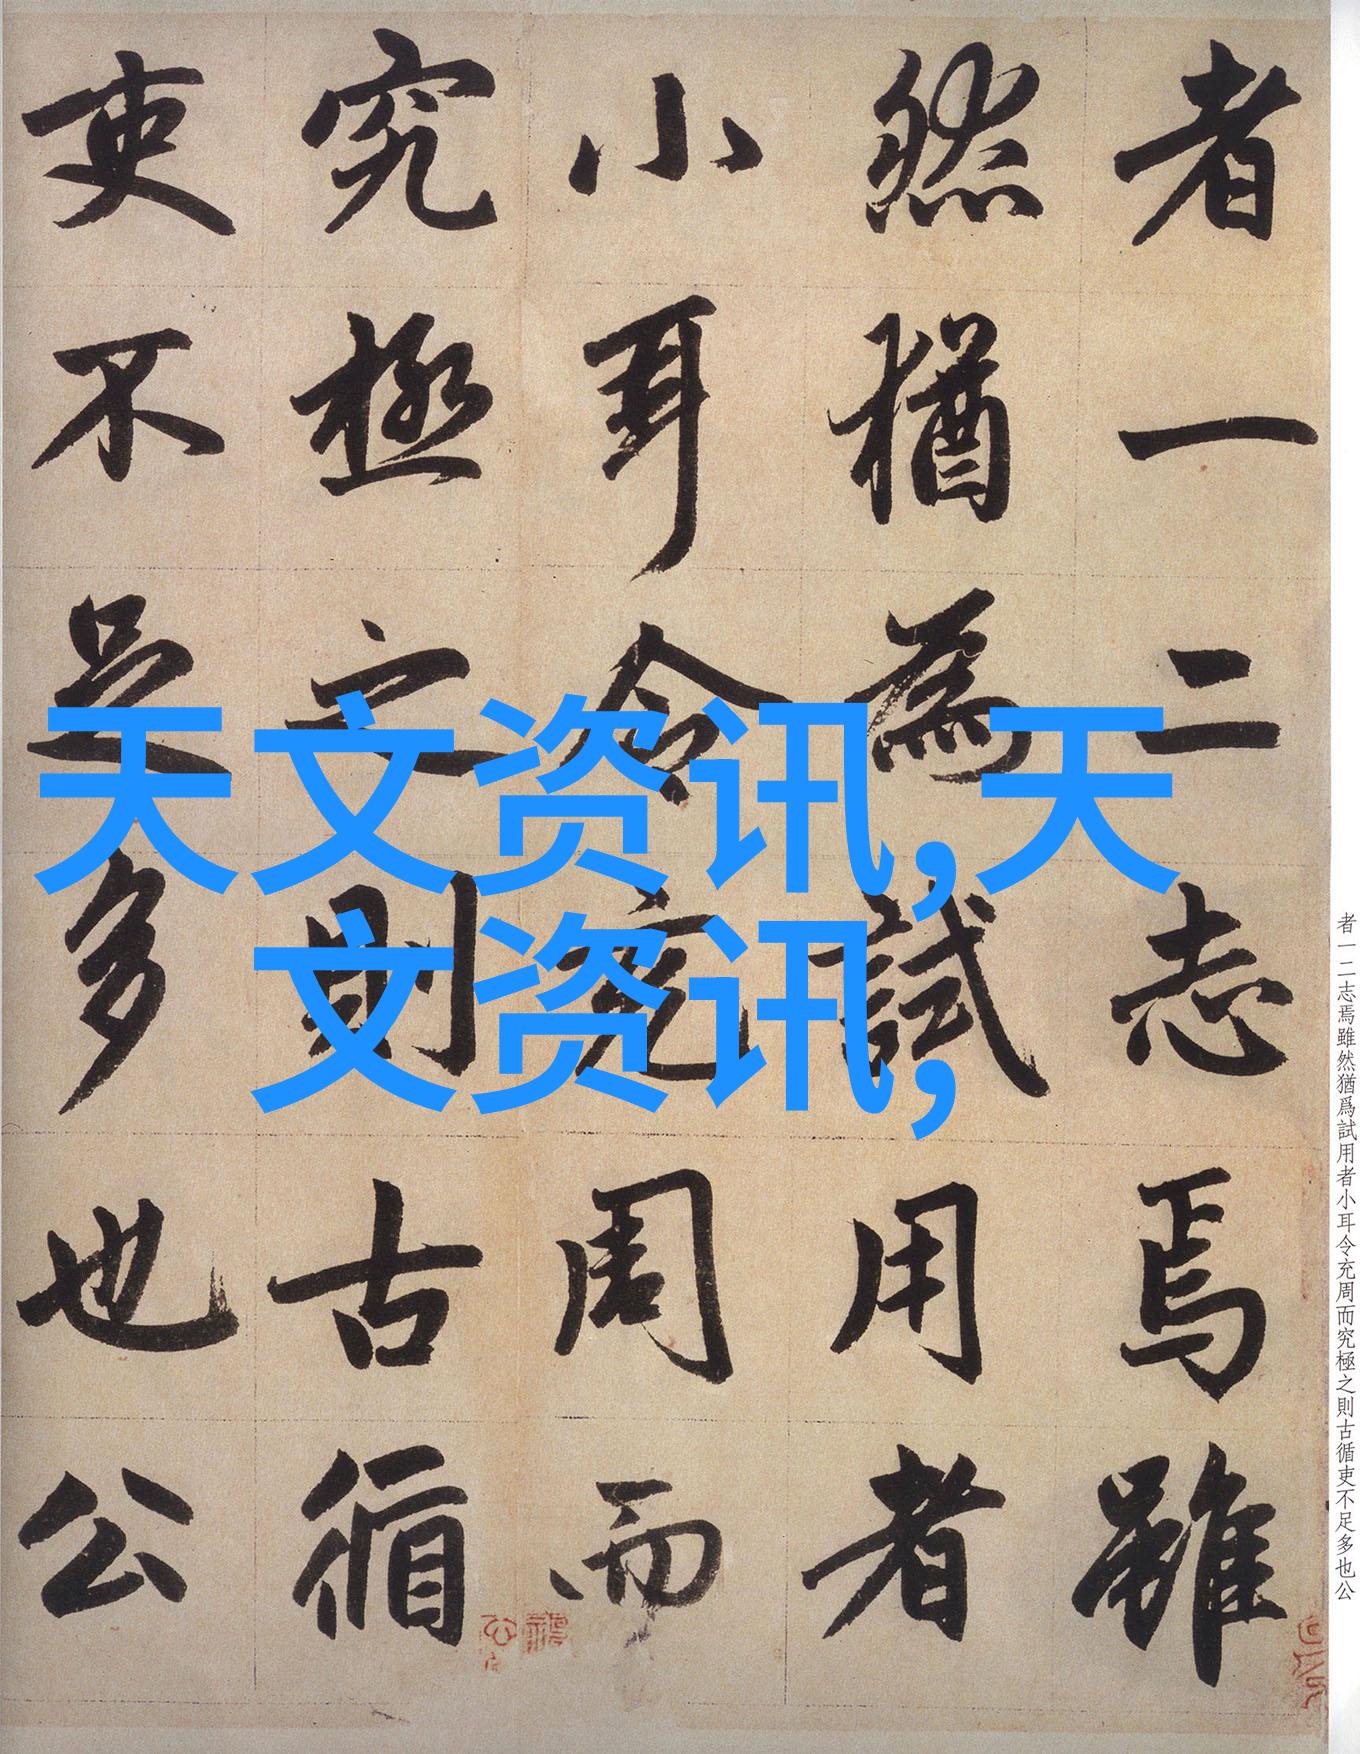 者一二志焉雖
然猶為試用者
小耳令充周而
究極之則古循
吏不足多也公
者一二志焉雖然猶爲試用者小耳令充周而究極之則古循吏不足多也公
天文资讯,天
文资讯,